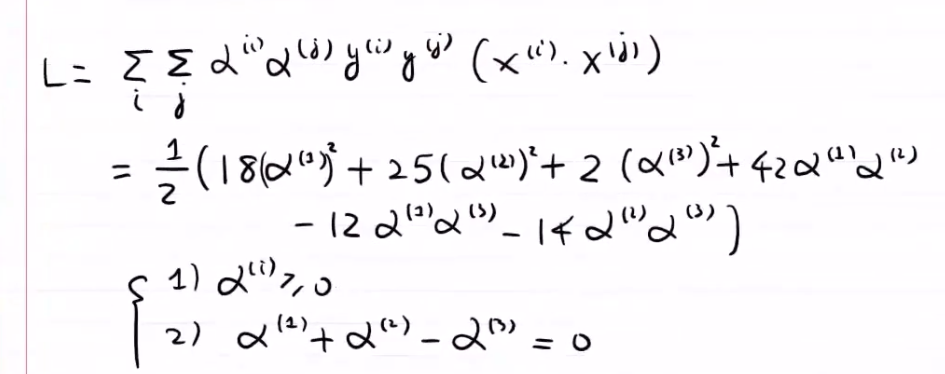 L = Σ_i Σ_j α^(i) α^(j) y^(i) y^(j) (x^(i) · x^(j))
= 1/2 (18(α^(1))^2 + 25(α^(2))^2 + 2 (α^(3))^2 + 42 α^(1) α^(2)
- 12 α^(1) α^(3) - 14 α^(2) α^(3))
{ 1) α^(i) ≥ 0
2) α^(1) + α^(2) - α^(3) = 0